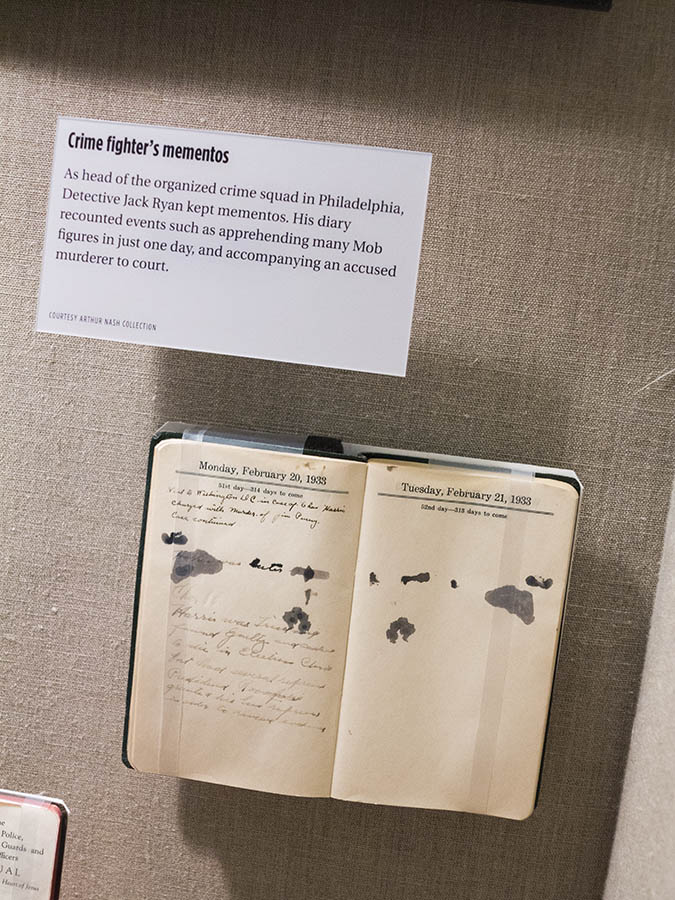 Crime fighter's mementos
As head of the organized crime squad in Philadelphia,
Detective Jack Ryan kept mementos. His diary
recounted events such as apprehending many Mob
figures in just one day, and accompanying an accused
murderer to court.
COURTESY ARTHUR NASH COLLECTION
Monday, February 20, 1933
51st day—314 days to come
Went to Washington D.C. in case of Chas Harris
charged with Murder of Jim Penny.
Case continued
was
Harris was Tried and
found Guilty and
to die in Electric Chair
had several
President Roosevelt
granted his
in order to
Tuesday, February 21, 1933
52nd day—313 days to come
Police,
Guards and
fficers
UAL
Heart of Jesus